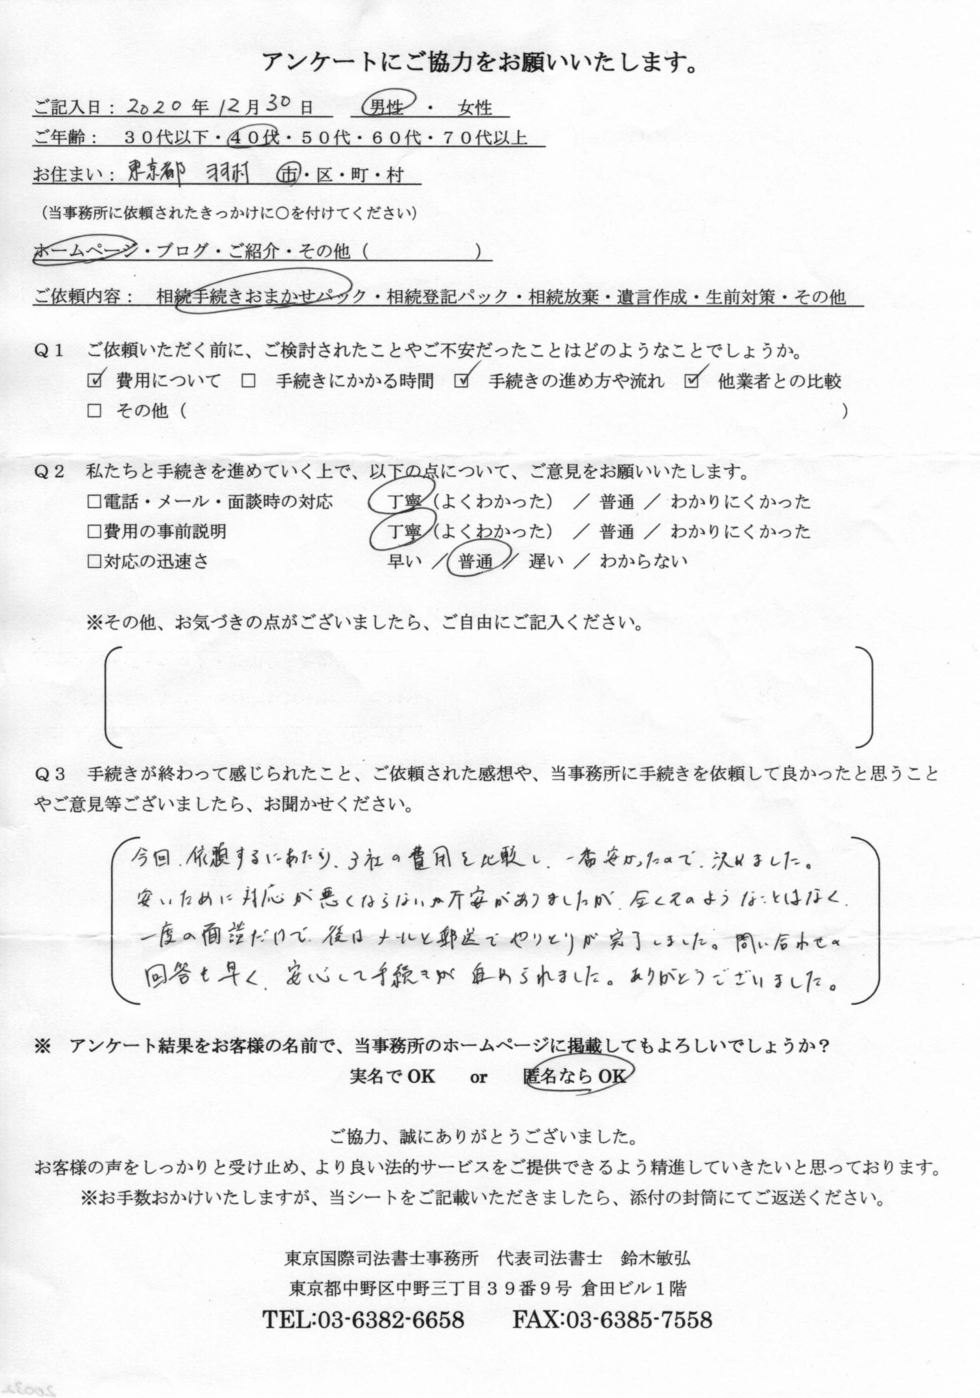 アンケートにご協力をお願いいたします。
ご記入日： 2020 年 12 月 30 日　男性 ・ 女性
ご年齢： ３０代以下・４０代・５０代・６０代・７０代以上
お住まい： 東京都 羽村 市・区・町・村
（当事務所に依頼されたきっかけに〇を付けてください）
ホームページ・ブログ・ご紹介・その他（　　　　　　）
ご依頼内容： 相続手続きおまかせパック・相続登記パック・相続放棄・遺言作成・生前対策・その他
Ｑ１　ご依頼いただく前に、ご検討されたことやご不安だったことはどのようなことでしょうか。
☑ 費用について　□ 手続きにかかる時間　☑ 手続きの進め方や流れ　☑ 他業者との比較
□ その他（　　　　　　）
Ｑ２　私たちと手続きを進めていく上で、以下の点について、ご意見をお願いいたします。
□電話・メール・面談時の対応　丁寧（よくわかった） ／ 普通 ／ わかりにくかった
□費用の事前説明　丁寧（よくわかった） ／ 普通 ／ わかりにくかった
□対応の迅速さ　早い ／ 普通 ／ 遅い ／ わからない
※その他、お気づきの点がございましたら、ご自由にご記入ください。
Ｑ３　手続きが終わって感じられたこと、ご依頼された感想や、当事務所に手続きを依頼して良かったと思うこと
やご意見等ございましたら、お聞かせください。
今回、依頼するにあたり、3社の費用を比較し、一番安かったので、決めました。
安いために対応が悪くならないか不安がありましたが、全くそのようなことはなく、
一度の面談だけで、後はメールと郵送でやりとりが完了しました。問い合わせの
回答も早く、安心して手続きが進められました。ありがとうございました。
※　アンケート結果をお客様の名前で、当事務所のホームページに掲載してもよろしいでしょうか？
実名で OK　or　匿名なら OK
ご協力、誠にありがとうございました。
お客様の声をしっかりと受け止め、より良い法的サービスをご提供できるよう精進していきたいと思っております。
※お手数おかけいたしますが、当シートをご記載いただきましたら、添付の封筒にてご返送ください。
東京国際司法書士事務所　代表司法書士　鈴木敏弘
東京都中野区中野三丁目３９番９号 倉田ビル１階
TEL:03-6382-6658　FAX:03-6385-7558